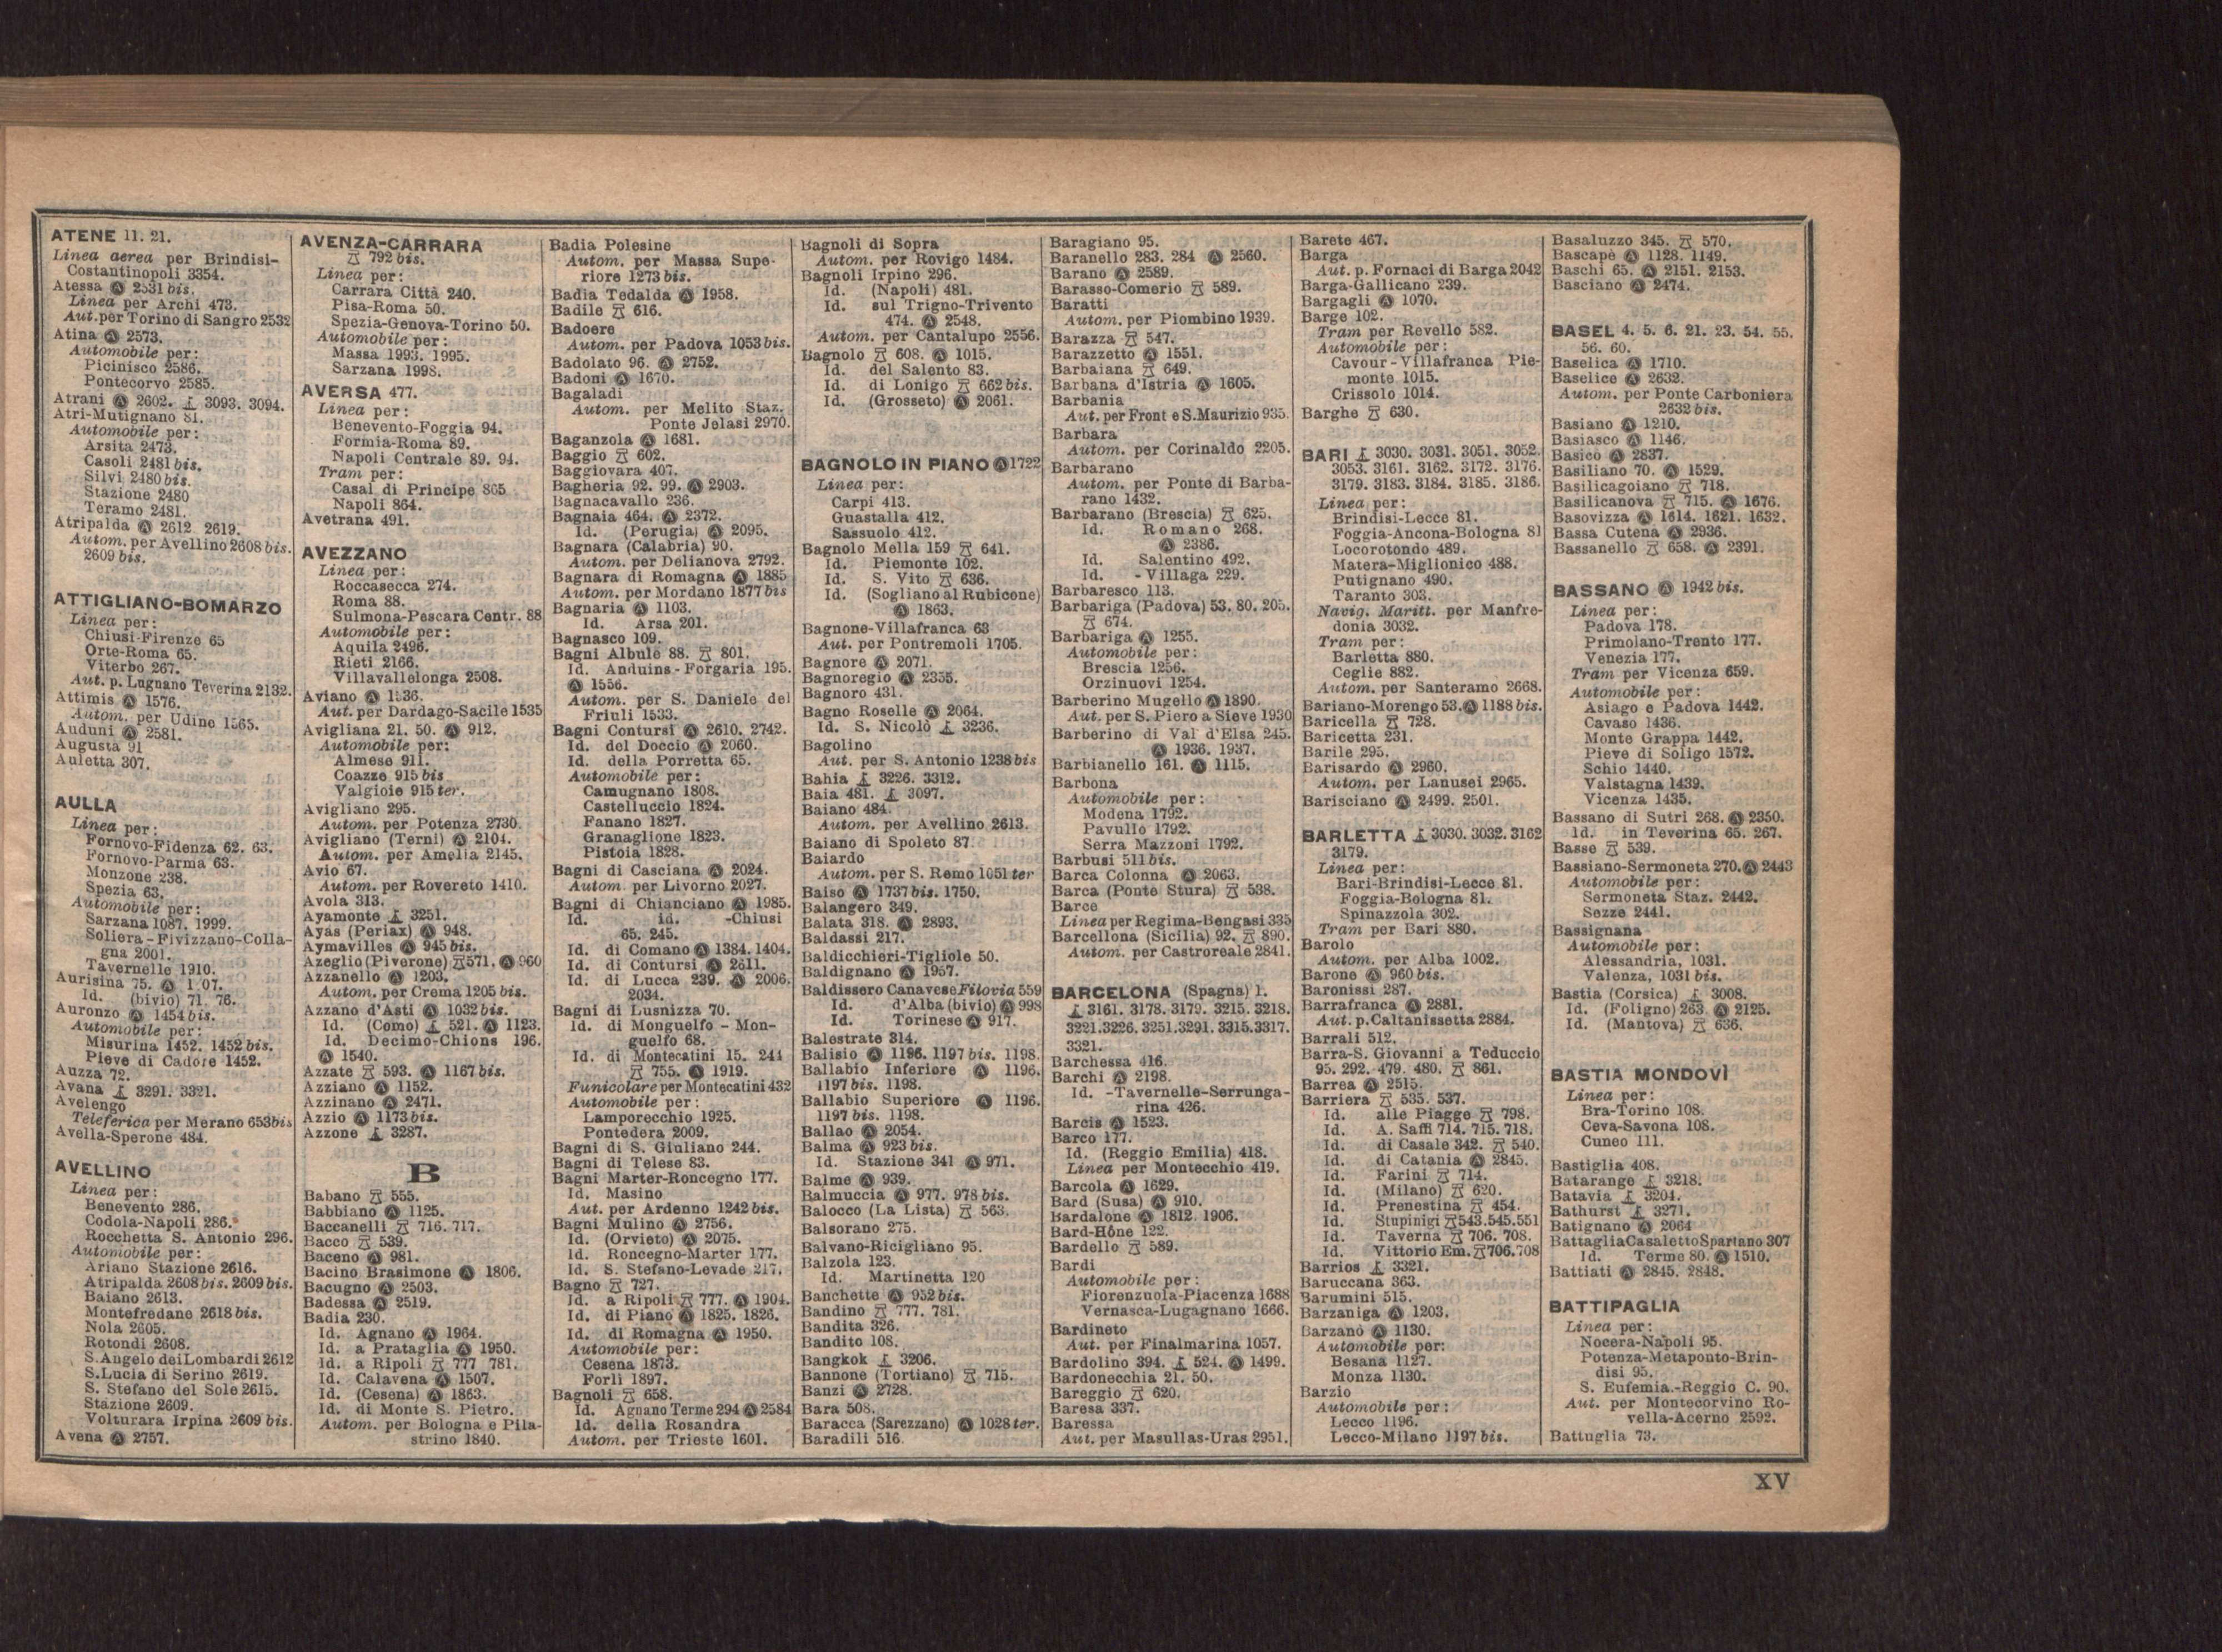 ATENE 11. 21.
Linea aerea per Brindisi-
Costantinopoli 3354.
Atessa Ⓐ 2531 bis.
Linea per Archi 473.
Aut. per Torino di Sangro 2532
Atina Ⓐ 2573.
Automobile per:
Picinisco 2586.
Pontecorvo 2585.
Atrani Ⓐ 2602. 3093. 3094.
Atri-Mutignano 81.
Automobile per:
Arsita 2473.
Casoli 2481 bis.
Silvi 2480 bis.
Stazione 2480
Teramo 2481.
Atripalda Ⓐ 2612. 2619.
Autom. per Avellino 2608 bis.
2609 bis.
ATTIGLIANO-BOMARZO
Linea per:
Chiusi-Firenze 65
Orte-Roma 65.
Viterbo 267.
Aut. p. Lugnano Teverina 2132.
Attimis Ⓐ 1576.
Autom. per Udine 1565.
Auduni Ⓐ 2581.
Augusta 91
Auletta 307.
AULLA
Linea per:
Fornovo-Fidenza 62. 63.
Fornovo-Parma 63.
Monzone 238.
Spezia 63.
Automobile per:
Sarzana 1087. 1999.
Soliera-Fivizzano-Colla-
gna 2001.
Tavernelle 1910.
Aurisina 75. Ⓐ
Id. (bivio) 71. 76.
Auronzo Ⓐ 1454 bis.
Automobile per:
Misurina 1452. 1452 bis.
Pieve di Cadore 1452.
Auzza 72.
Avana 3291. 3321.
Avelengo
Teleferica per Merano 653 bis
Avella-Sperone 484.
AVELLINO
Linea per:
Benevento 286.
Codola-Napoli 286.
Rocchetta S. Antonio 296.
Automobile per:
Ariano Stazione 2616.
Atripalda 2608 bis. 2609 bis.
Baiano 2613.
Montefredane 2618 bis.
Nola 2605.
Rotondi 2608.
S. Angelo dei Lombardi 2612
S. Lucia di Serino 2619.
S. Stefano del Sole 2615.
Stazione 2609.
Volturara Irpina 2609 bis.
Avena Ⓐ 2757.
AVENZA-CARRARA
792 bis.
Linea per:
Carrara Città 240.
Pisa-Roma 50.
Spezia-Genova-Torino 50.
Automobile per:
Massa 1993. 1995.
Sarzana 1998.
AVERSA 477.
Linea per:
Benevento-Foggia 94.
Formia-Roma 89.
Napoli Centrale 89. 94.
Tram per:
Casal di Principe 865
Napoli 864.
Avetrana 491.
AVEZZANO
Linea per:
Roccasecca 274.
Roma 88.
Sulmona-Pescara Centr. 88
Automobile per:
Aquila 2496.
Rieti 2166.
Villavallelonga 2508.
Aviano Ⓐ 1536.
Aut. per Dardago-Sacile 1535
Avigliana 21. 50. Ⓐ 912.
Automobile per:
Almese 911.
Coazze 915 bis
Valgioie 915 ter.
Avigliano 295.
Autom. per Potenza 2730.
Avigliano (Terni) Ⓐ 2104.
Autom. per Amelia 2145.
Avio 67.
Autom. per Rovereto 1410.
Avola 313.
Ayamonte 3251.
Ayas (Periax) Ⓐ 948.
Aymavilles Ⓐ 945 bis.
Azeglio (Piverone) 571. Ⓐ 960
Azzanello Ⓐ 1203.
Autom. per Crema 1205 bis.
Azzano d'Asti Ⓐ 1032 bis.
Id. (Como) 521. Ⓐ 1123.
Id. Decimo-Chions 196.
Ⓐ 1540.
Azzate 593. Ⓐ 1167 bis.
Azziano Ⓐ 1152.
Azzinano Ⓐ 2471.
Azzio Ⓐ 1173 bis.
Azzone 3287.
B
Babano 555.
Babbiano Ⓐ 1125.
Baccanelli 716. 717.
Bacco 539.
Baceno Ⓐ 981.
Bacino Brasimone Ⓐ 1806.
Bacugno Ⓐ 2503.
Badessa Ⓐ 2519.
Badia 230.
Id. Agnano Ⓐ 1964.
Id. a Prataglia Ⓐ 1950.
Id. a Ripoli 777 781.
Id. Calavena Ⓐ 1507.
Id. (Cesena) Ⓐ 1863.
Id. di Monte S. Pietro.
Autom. per Bologna e Pila-
strino 1840.
Badia Polesine
Autom. per Massa Supe-
riore 1273 bis.
Badia Tedalda Ⓐ 1958.
Badile 616.
Badoere
Autom. per Padova 1053 bis.
Badolato 96. Ⓐ 2752.
Badoni Ⓐ 1670.
Bagaladi
Autom. per Melito Staz.
Ponte Jelasi 2970.
Baganzola Ⓐ 1681.
Baggio 602.
Baggiovara 407.
Bagheria 92. 99. Ⓐ 2903.
Bagnacavallo 236.
Bagnaia 464. Ⓐ 2372.
Id. (Perugia) Ⓐ 2095.
Bagnara (Calabria) 90.
Autom. per Delianova 2792.
Bagnara di Romagna Ⓐ 1885
Autom. per Mordano 1877 bis
Bagnaria Ⓐ 1103.
Id. Arsa 201.
Bagnasco 109.
Bagni Albule 88. 801.
Id. Anduins-Forgaria 195.
Ⓐ 1556.
Autom. per S. Daniele del
Friuli 1533.
Bagni Contursi Ⓐ 2610. 2742.
Id. del Doccio Ⓐ 2060.
Id. della Porretta 65.
Automobile per:
Camugnano 1808.
Castelluccio 1824.
Fanano 1827.
Granaglione 1823.
Pistoia 1828.
Bagni di Casciana Ⓐ 2024.
Autom. per Livorno 2027.
Bagni di Chianciano Ⓐ 1985.
Id. id. -Chiusi
65. 245.
Id. di Comano Ⓐ 1384. 1404.
Id. di Contursi Ⓐ 2611.
Id. di Lucca 239. Ⓐ 2006.
2034.
Bagni di Lusnizza 70.
Id. di Monguelfo - Mon-
guelfo 68.
Id. di Montecatini 15. 244
755. Ⓐ 1919.
Funicolare per Montecatini 432
Automobile per:
Lamporecchio 1925.
Pontedera 2009.
Bagni di S. Giuliano 244.
Bagni di Telese 83.
Bagni Marter-Roncegno 177.
Id. Masino
Aut. per Ardenno 1242 bis.
Bagni Mulino Ⓐ 2756.
Id. (Orvieto) Ⓐ 2075.
Id. Roncegno-Marter 177.
Id. S. Stefano-Levade 217.
Bagno 727.
Id. a Ripoli 777. Ⓐ 1904.
Id. di Piano Ⓐ 1825. 1826.
Id. di Romagna Ⓐ 1950.
Automobile per:
Cesena 1873.
Forlì 1897.
Bagnoli 658.
Id. Agnano Terme 294 Ⓐ 2584
Id. della Rosandra
Autom. per Trieste 1601.
Bagnoli di Sopra
Autom. per Rovigo 1484.
Bagnoli Irpino 296.
Id. (Napoli) 481.
Id. sul Trigno-Trivento
474. Ⓐ 2548.
Autom. per Cantalupo 2556.
Bagnolo 608. Ⓐ 1015.
Id. del Salento 83.
Id. di Lonigo 662 bis.
Id. (Grosseto) Ⓐ 2061.
BAGNOLO IN PIANO Ⓐ 1722
Linea per:
Carpi 413.
Guastalla 412.
Sassuolo 412.
Bagnolo Mella 159 641.
Id. Piemonte 102.
Id. S. Vito 636.
Id. (Sogliano al Rubicone)
Ⓐ 1863.
Bagnone-Villafranca 63
Aut. per Pontremoli 1705.
Bagnore Ⓐ 2071.
Bagnoregio Ⓐ 2355.
Bagnoro 431.
Bagno Roselle Ⓐ 2064.
Id. S. Nicolò 3236.
Bagolino
Aut. per S. Antonio 1238 bis
Bahia 3226. 3312.
Baia 481. 3097.
Baiano 484.
Autom. per Avellino 2613.
Baiano di Spoleto 87
Baiardo
Autom. per S. Remo 1051 ter
Baiso Ⓐ 1737 bis. 1750.
Balangero 349.
Balata 318. Ⓐ 2893.
Baldassi 217.
Baldicchieri-Tigliole 50.
Baldignano Ⓐ 1957.
Baldissero Canavese Filovia 559
Id. d'Alba (bivio) Ⓐ 998
Id. Torinese Ⓐ 917.
Balestrate 314.
Balisio Ⓐ 1196. 1197 bis. 1198.
Ballabio Inferiore Ⓐ 1196.
1197 bis. 1198.
Ballabio Superiore Ⓐ 1196.
1197 bis. 1198.
Ballao Ⓐ 2054.
Balma Ⓐ 923 bis.
Id. Stazione 341 Ⓐ 971.
Balme Ⓐ 939.
Balmuccia Ⓐ 977. 978 bis.
Balocco (La Lista) 563.
Balsorano 275.
Balvano-Ricigliano 95.
Balzola 123.
Id. Martinetta 120
Banchette Ⓐ 952 bis.
Bandino 777. 781.
Bandita 326.
Bandito 108.
Bangkok 3206.
Bannone (Tortiano) 715.
Banzi Ⓐ 2728.
Bara 508.
Baracca (Sarezzano) Ⓐ 1028 ter.
Baradili 516.
Baragiano 95.
Baranello 283. 284 Ⓐ 2560.
Barano Ⓐ 2589.
Barasso-Comerio 589.
Baratti
Autom. per Piombino 1939.
Barazza 547.
Barazzetto Ⓐ 1551.
Barbaiana 649.
Barbana d'Istria Ⓐ 1605.
Barbania
Aut. per Front e S. Maurizio 935.
Barbara
Autom. per Corinaldo 2205.
Barbarano
Autom. per Ponte di Barba-
rano 1432.
Barbarano (Brescia) 625.
Id. Romano 268.
Ⓐ 2386.
Id. Salentino 492.
Id. - Villaga 229.
Barbaresco 113.
Barbariga (Padova) 53. 80. 205.
674.
Barbariga Ⓐ 1255.
Automobile per:
Brescia 1256.
Orzinuovi 1254.
Barberino Mugello Ⓐ 1890.
Aut. per S. Piero a Sieve 1930
Barberino di Val d'Elsa 245.
Ⓐ 1936. 1937.
Barbianello 161. Ⓐ 1115.
Barbona
Automobile per:
Modena 1792.
Pavullo 1792.
Serra Mazzoni 1792.
Barbusi 511 bis.
Barca Colonna Ⓐ 2063.
Barca (Ponte Stura) 538.
Barce
Linea per Regima-Bengasi 335
Barcellona (Sicilia) 92. 890.
Autom. per Castroreale 2841.
BARCELONA (Spagna) 1.
3161. 3178. 3179. 3215. 3218.
3221. 3226. 3251. 3291. 3315. 3317.
3321.
Barchessa 416.
Barchi Ⓐ 2198.
Id. -Tavernelle-Serrunga-
rina 426.
Barcis Ⓐ 1523.
Barco 177.
Id. (Reggio Emilia) 418.
Linea per Montecchio 419.
Barcola Ⓐ 1629.
Bard (Susa) Ⓐ 910.
Bardalone Ⓐ 1812. 1906.
Bard-Hône 122.
Bardello 589.
Bardi
Automobile per:
Fiorenzuola-Piacenza 1688
Vernasca-Lugagnano 1666.
Bardineto
Aut. per Finalmarina 1057.
Bardolino 394. 524. Ⓐ 1499.
Bardonecchia 21. 50.
Bareggio 620.
Baresa 337.
Baressa
Aut. per Masullas-Uras 2951.
Barete 467.
Barga
Aut. p. Fornaci di Barga 2042
Barga-Gallicano 239.
Bargagli Ⓐ 1070.
Barge 102.
Tram per Revello 582.
Automobile per:
Cavour-Villafranca Pie-
monte 1015.
Crissolo 1014.
Barghe 630.
BARI 3030. 3031. 3051. 3052.
3053. 3161. 3162. 3172. 3176.
3179. 3183. 3184. 3185. 3186.
Linea per:
Brindisi-Lecce 81.
Foggia-Ancona-Bologna 81
Locorotondo 489.
Matera-Miglionico 488.
Putignano 490.
Taranto 303.
Navig. Maritt. per Manfre-
donia 3032.
Tram per:
Barletta 880.
Ceglie 882.
Autom. per Santeramo 2668.
Bariano-Morengo 53. Ⓐ 1188 bis.
Baricella 728.
Baricetta 231.
Barile 295.
Barisardo Ⓐ 2960.
Autom. per Lanusei 2965.
Barisciano Ⓐ 2499. 2501.
BARLETTA 3030. 3032. 3162
3179.
Linea per:
Bari-Brindisi-Lecce 81.
Foggia-Bologna 81.
Spinazzola 302.
Tram per Bari 880.
Barolo
Autom. per Alba 1002.
Barone Ⓐ 960 bis.
Baronissi 287.
Barrafranca Ⓐ 2881.
Aut. p. Caltanissetta 2884.
Barrali 512.
Barra-S. Giovanni a Teduccio
95. 292. 479. 480. 861.
Barrea Ⓐ 2515.
Barriera 535. 537.
Id. alle Piagge 798.
Id. A. Saffi 714. 715. 718.
Id. di Casale 342. 540.
Id. di Catania Ⓐ 2845.
Id. Farini 714.
Id. (Milano) 620.
Id. Prenestina 454.
Id. Stupinigi 543. 545. 551
Id. Taverna 706. 708.
Id. Vittorio Em. 706. 708
Barrios 3321.
Baruccana 363.
Barumini 515.
Barzaniga Ⓐ 1203.
Barzanò Ⓐ 1130.
Automobile per:
Besana 1127.
Monza 1130.
Barzio
Automobile per:
Lecco 1196.
Lecco-Milano 1197 bis.
Basaluzzo 345. 570.
Bascapè Ⓐ 1128. 1149.
Baschi 65. Ⓐ 2151. 2153.
Basciano Ⓐ 2474.
BASEL 4. 5. 6. 21. 23. 54. 55.
56. 60.
Baselica Ⓐ 1710.
Baselice Ⓐ 2632.
Autom. per Ponte Carboniera
2632 bis.
Basiano Ⓐ 1210.
Basiasco Ⓐ 1146.
Basicò Ⓐ 2837.
Basiliano 70. Ⓐ 1529.
Basilicagoiano 718.
Basilicanova 715. Ⓐ 1676.
Basovizza Ⓐ 1614. 1621. 1632.
Bassa Cutena Ⓐ 2936.
Bassanello 658. Ⓐ 2391.
BASSANO Ⓐ 1942 bis.
Linea per:
Padova 178.
Primolano-Trento 177.
Venezia 177.
Tram per Vicenza 659.
Automobile per:
Asiago e Padova 1442.
Cavaso 1436.
Monte Grappa 1442.
Pieve di Soligo 1572.
Schio 1440.
Valstagna 1439.
Vicenza 1435.
Bassano di Sutri 268. Ⓐ 2350.
Id. in Teverina 65. 267.
Basse 539.
Bassiano-Sermoneta 270. Ⓐ 2443
Automobile per:
Sermoneta Staz. 2442.
Sezze 2441.
Bassignana
Automobile per:
Alessandria, 1031.
Valenza, 1031 bis.
Bastia (Corsica) 3008.
Id. (Foligno) 263. Ⓐ 2125.
Id. (Mantova) 636.
BASTIA MONDOVÌ
Linea per:
Bra-Torino 108.
Ceva-Savona 108.
Cuneo 111.
Bastiglia 408.
Batarange 3218.
Batavia 3204.
Bathurst 3271.
Batignano Ⓐ 2064
Battaglia Casaletto Spartano 307
Id. Terme 80. Ⓐ 1510.
Battiati Ⓐ 2845. 2848.
BATTIPAGLIA
Linea per:
Nocera-Napoli 95.
Potenza-Metaponto-Brin-
disi 95.
S. Eufemia.-Reggio C. 90.
Aut. per Montecorvino Ro-
vella-Acerno 2592.
Battuglia 73.
XV